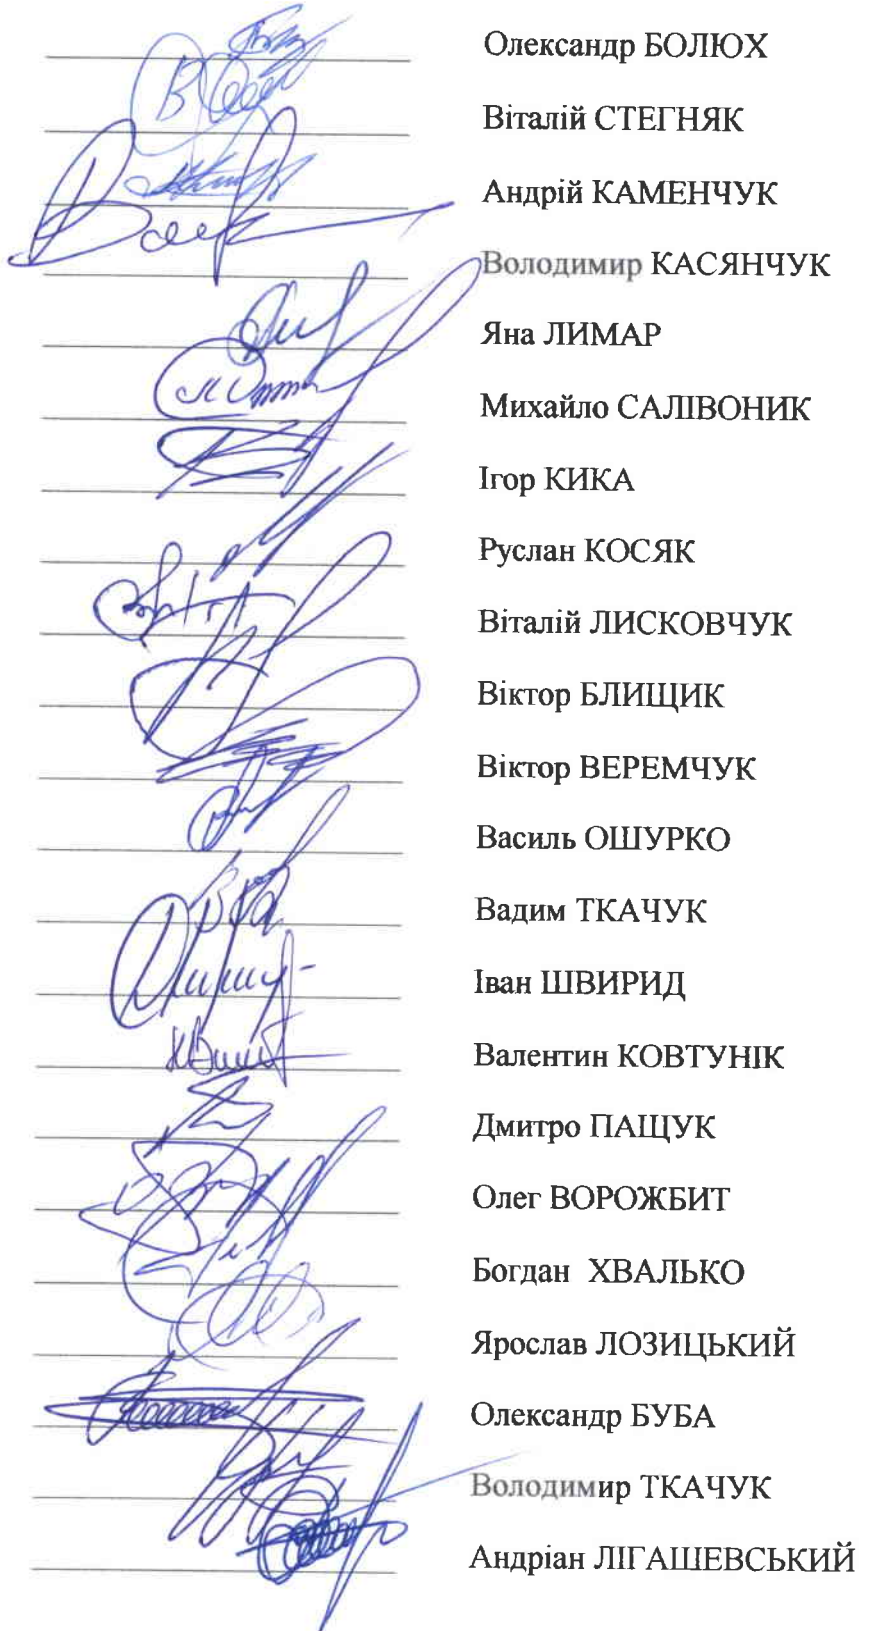 Олександр БОЛЮХ
Віталій СТЕГНЯК
Андрій КАМЕНЧУК
Володимир КАСЯНЧУК
Яна ЛИМАР
Михайло САЛІВОНИК
Ігор КИКА
Руслан КОСЯК
Віталій ЛИСКОВЧУК
Віктор БЛИЩИК
Віктор ВЕРЕМЧУК
Василь ОШУРКО
Вадим ТКАЧУК
Іван ШВИРИД
Валентин КОВТУНІК
Дмитро ПАЩУК
Олег ВОРОЖБИТ
Богдан ХВАЛЬКО
Ярослав ЛОЗИЦЬКИЙ
Олександр БУБА
Володимир ТКАЧУК
Андріан ЛІГАШЕВСЬКИЙ